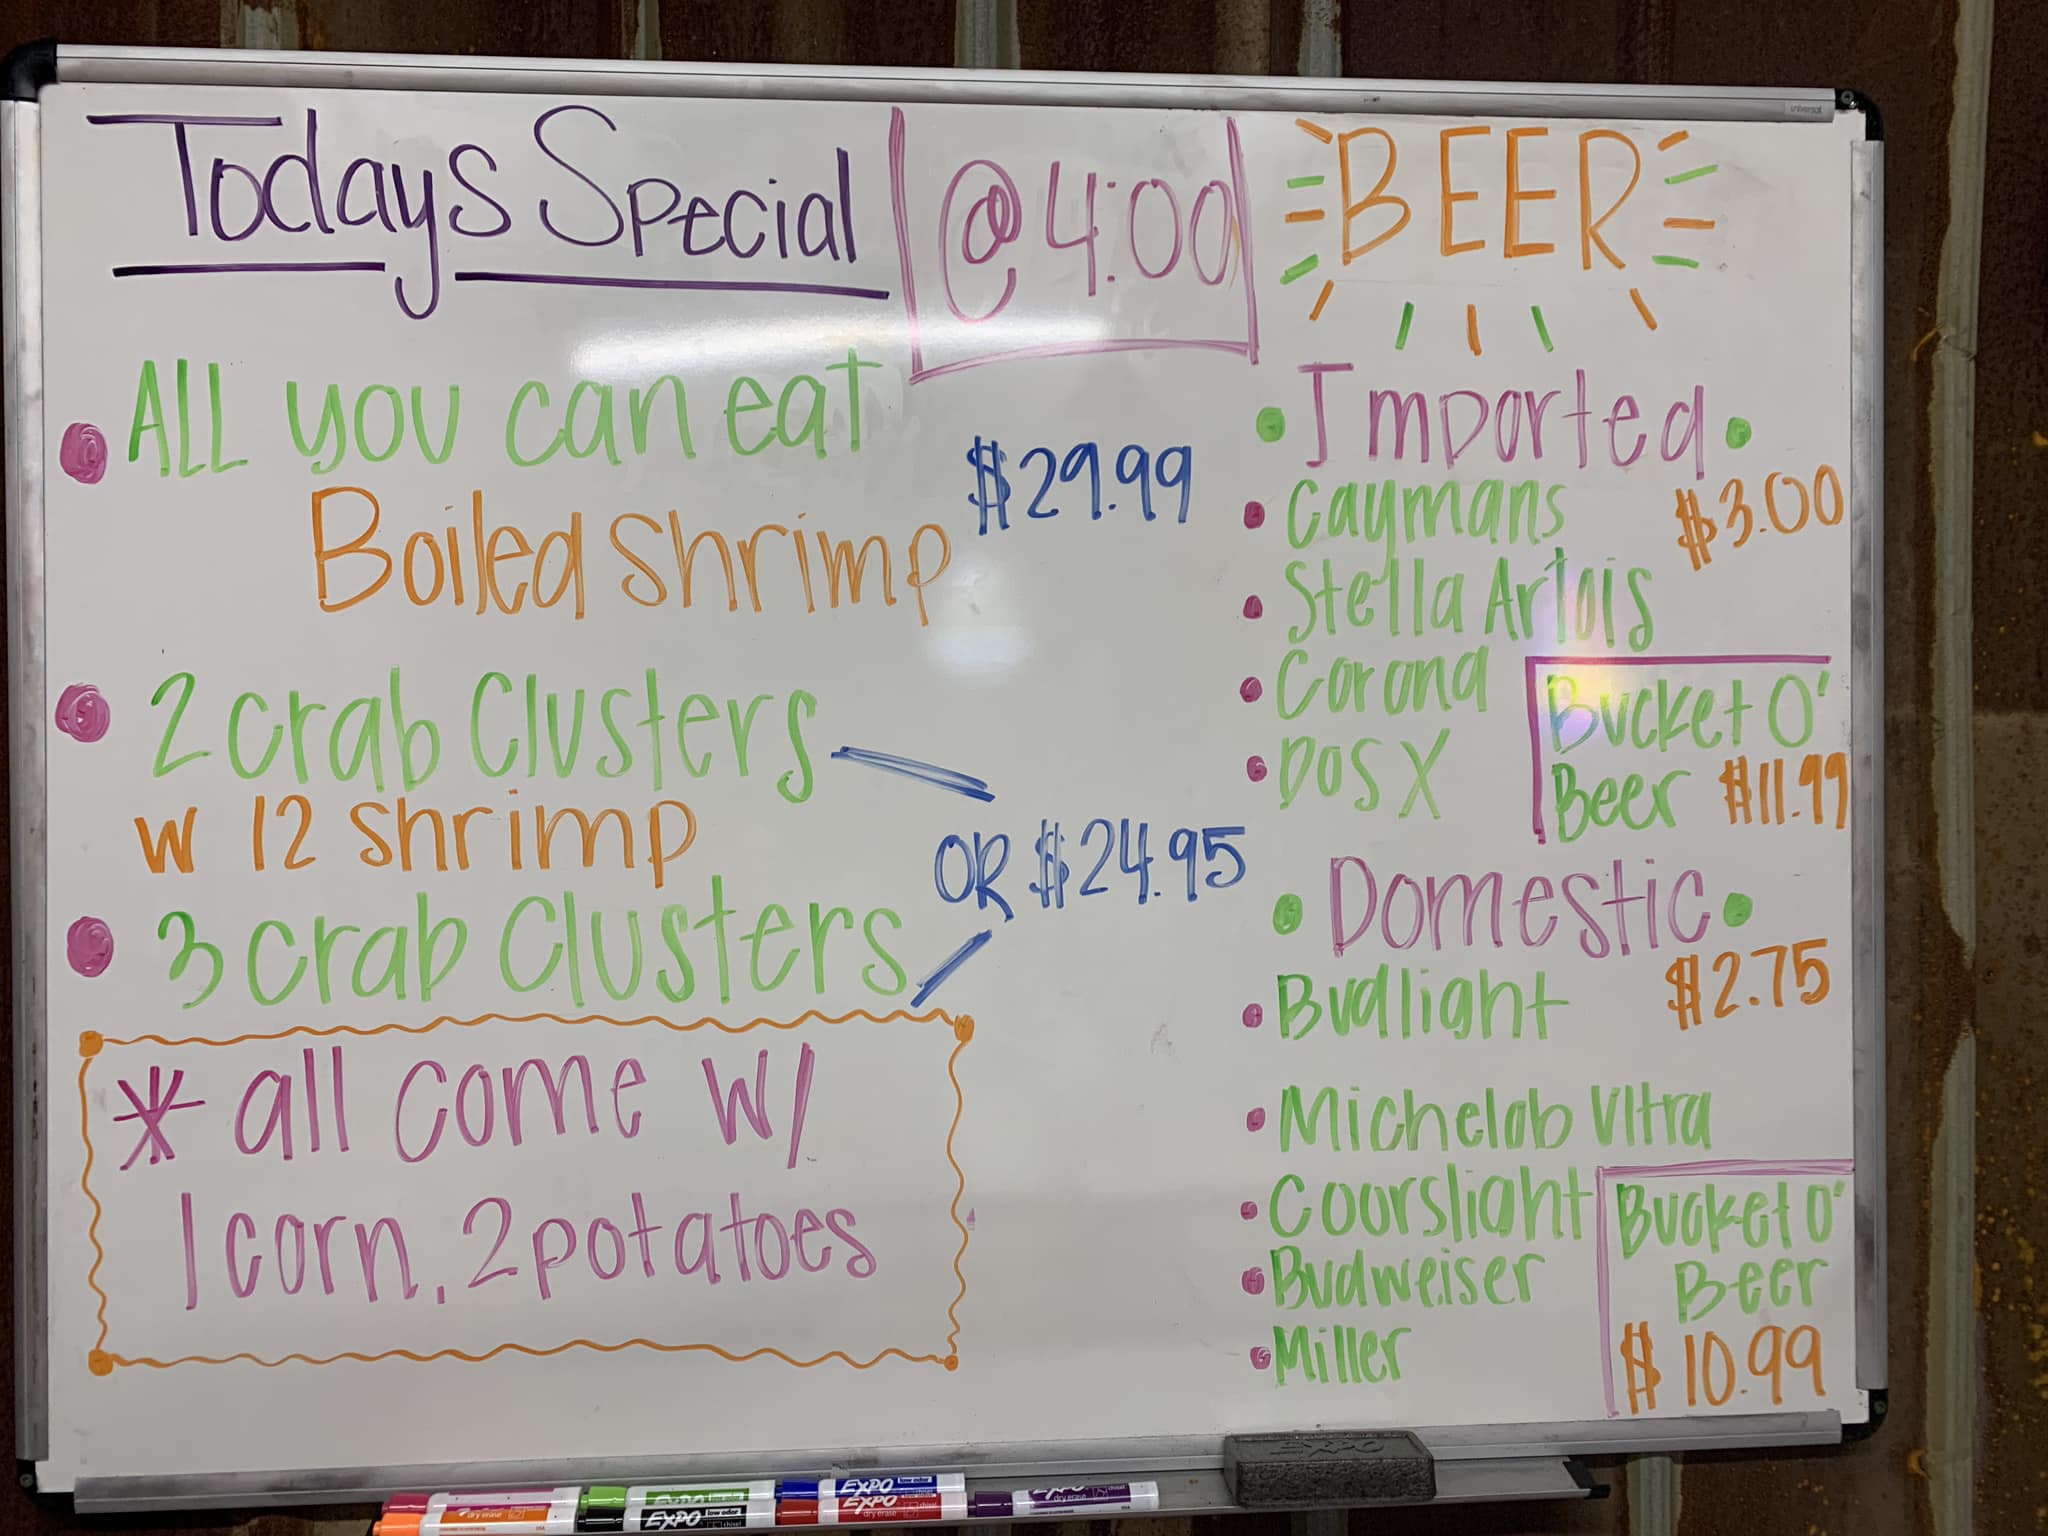 Todays Special
@4:00
ALL you can eat
Boiled Shrimp
$29.99
2 crab Clusters
w 12 shrimp
OR $24.95
3 crab Clusters
* all come w/
1 corn, 2 potatoes
BEER
Imported
Caymans
$3.00
Stella Artois
Corona
DOS X
Bucket O'
Beer $11.99
Domestic
$2.75
Budlight
Michelob Ultra
Coorslight
Budweiser
Miller
Bucket O'
Beer
$10.99
universal
EXPO
EXPO
low odor
dry erase
EXPO
low odor
chisel
EXPO
dry erase
chisel
EXPO
dry erase
chisel